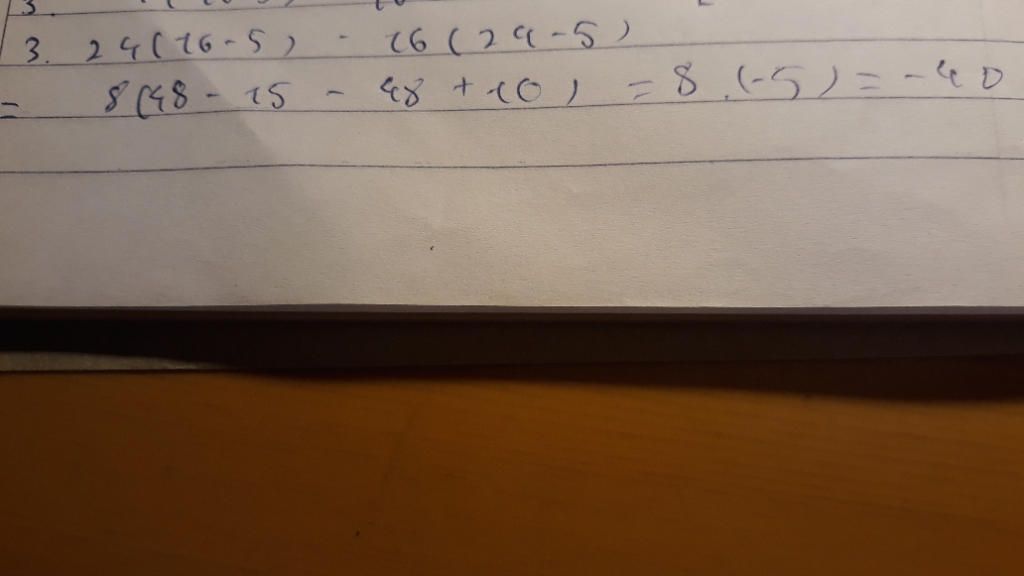 3. 24(16-5) - 16(24-5)
= 8(48 - 15 - 48 + 10) = 8.(-5) = -40